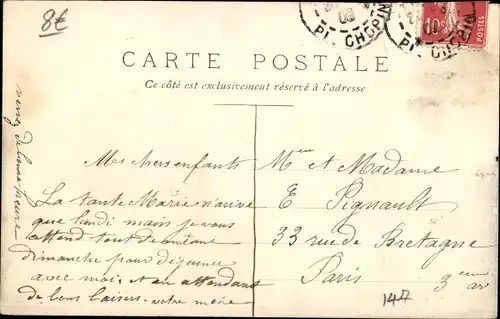 8€
PL. CHOPIN
08
PL. CHOPIN
10c
POSTES
CARTE POSTALE
Ce côté est exclusivement réservé à l'adresse
Mes chers enfants
La tante Marie n'arrive
que lundi mais je vous
attend tout de même
dimanche pour déjeuner
avec moi. en attendant
de bons baisers votre mère
venez de bonne heure
Mme et Madame
E Pignault
33 rue de Bretagne
Paris 3eme
ar
147